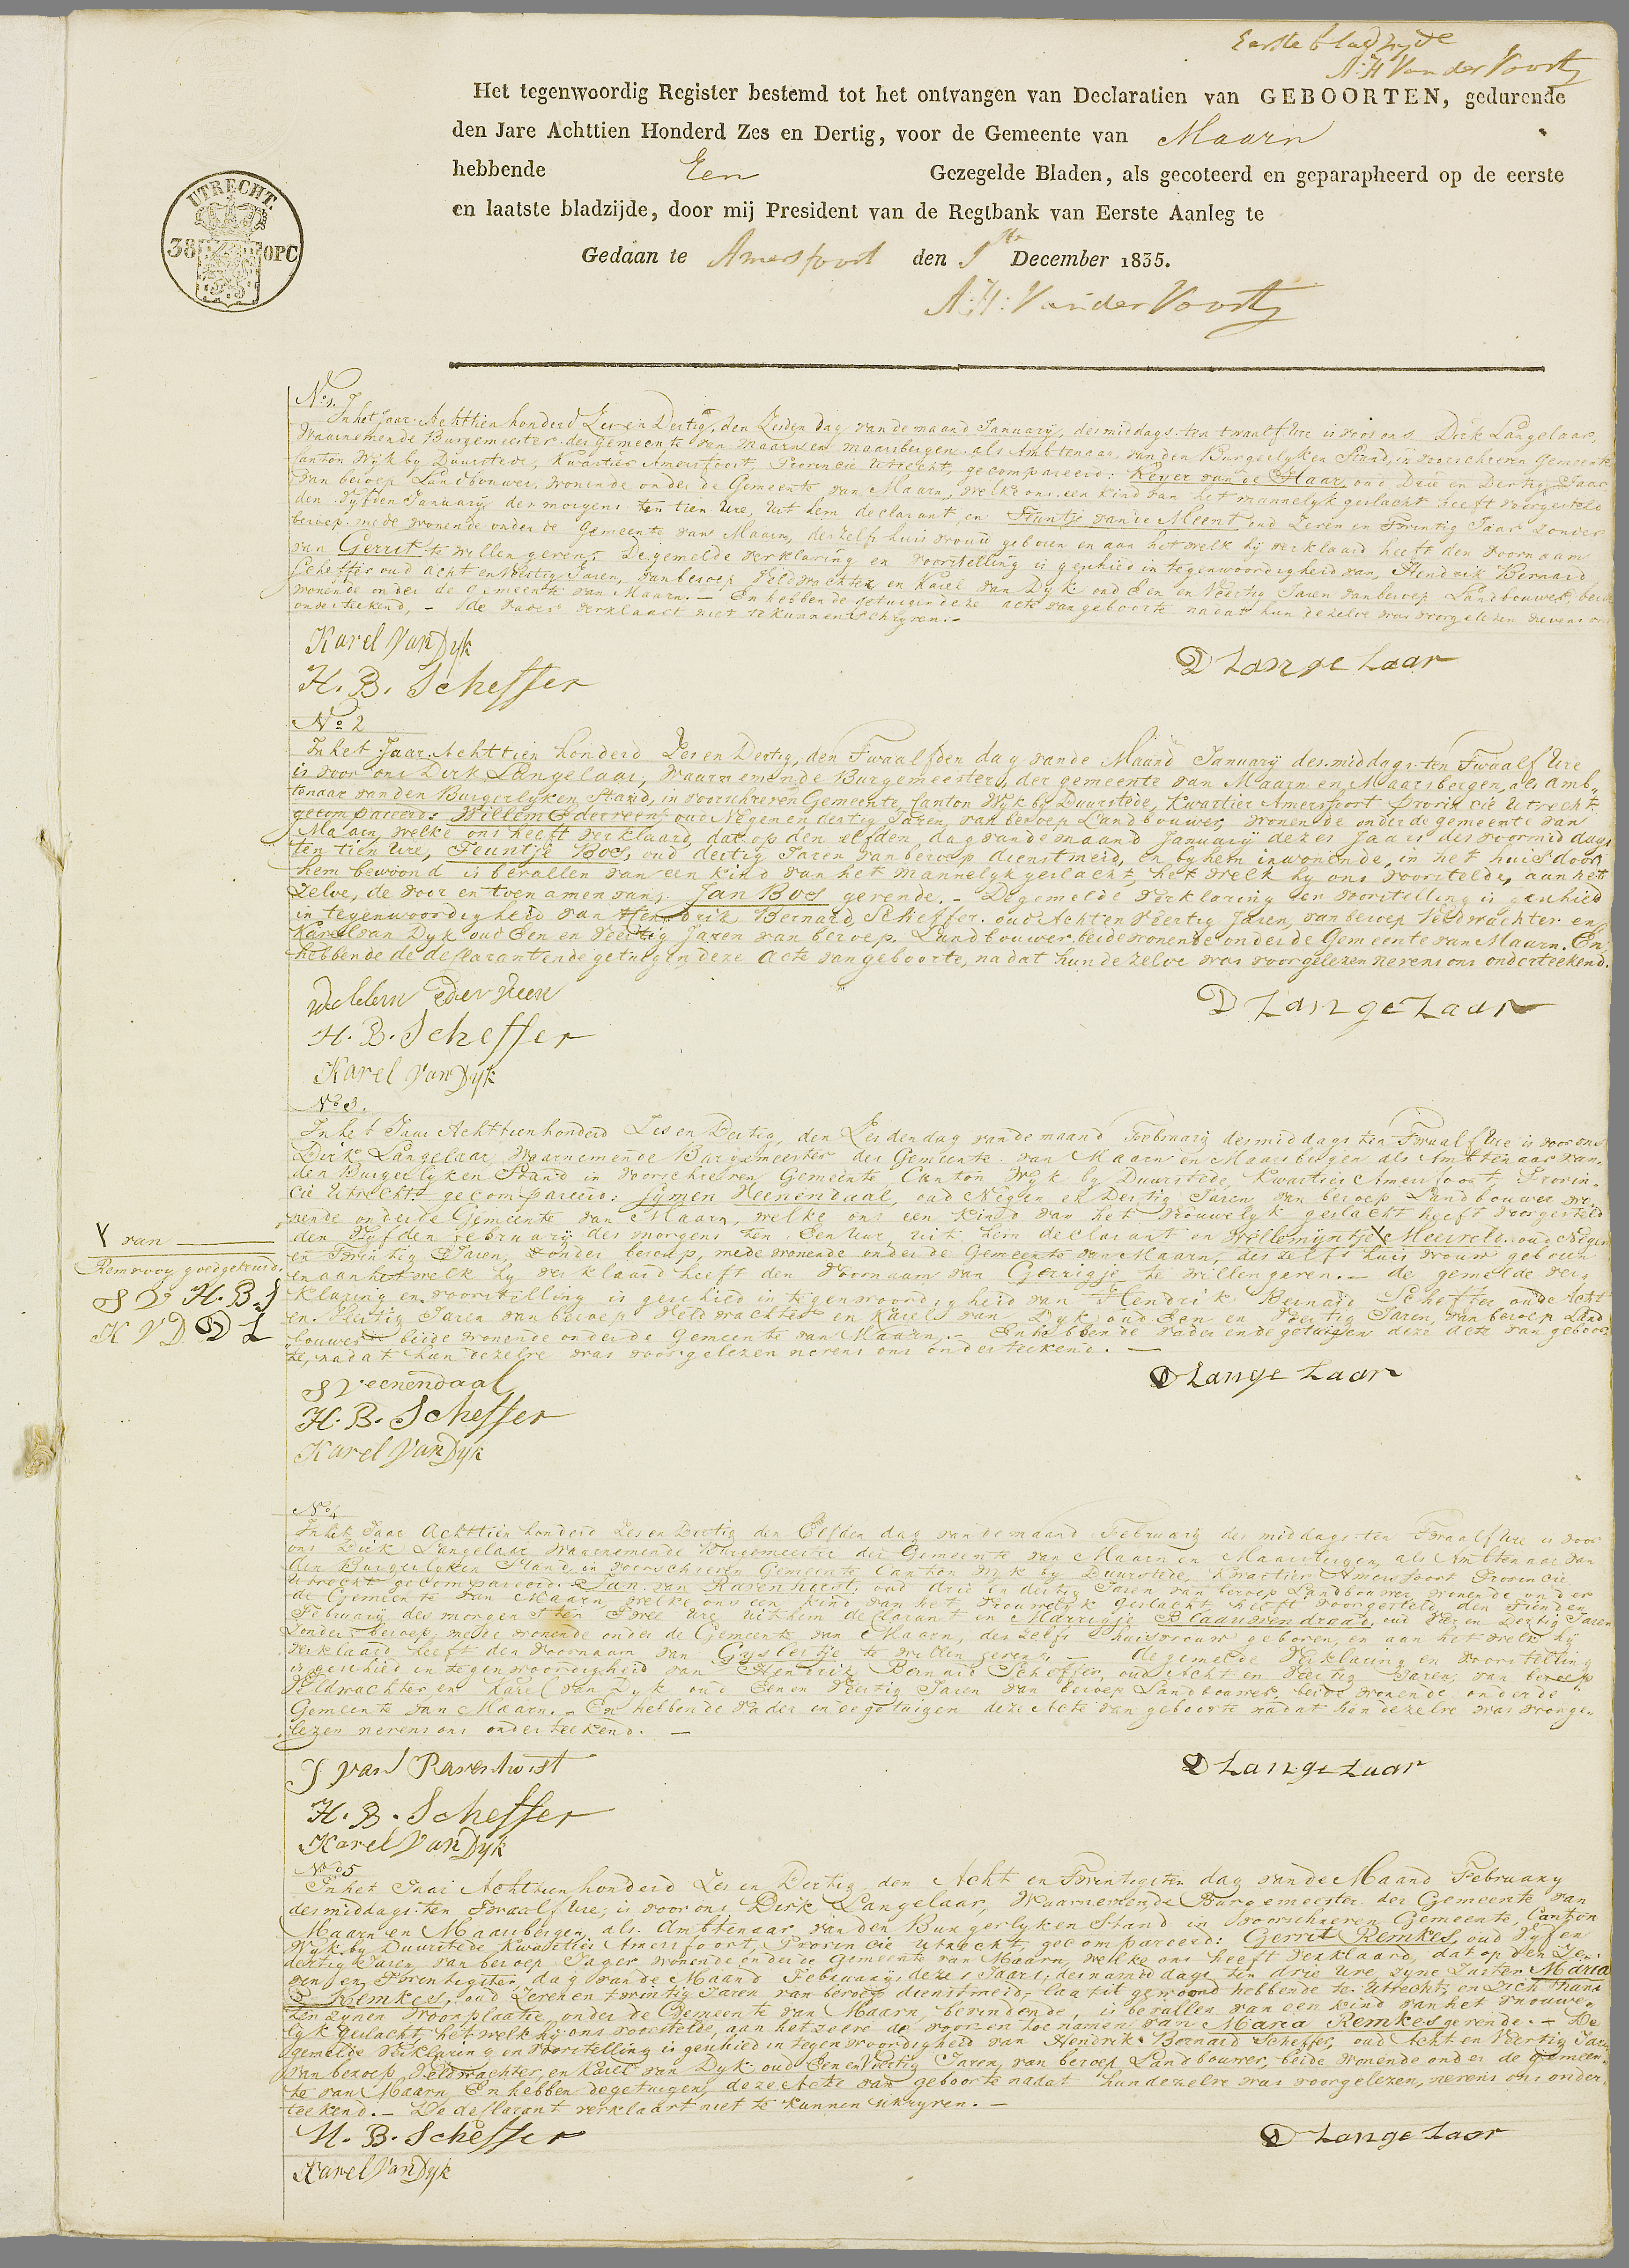 Eerste bladzyde
A:H Van der Voort
Het tegenwoordig Register bestemd tot het ontvangen van Declaratien van GEBOORTEN, gedurende
den Jare Achttien Honderd Zes en Dertig, voor de Gemeente van Maarn
hebbende Een Gezegelde Bladen, als gecoteerd en geparapheerd op de eerste
en laatste bladzijde, door mij President van de Regtbank van Eerste Aanleg te
Gedaan te Amersfoort den 1ste December 1835.
A:H: Van der Voort
UTRECHT.
38 OPC
No 1.
In het Jaar Achttien honderd Zes en Dertig, den Zesden dag van de maand January, des middags ten twaalf Ure is voor ons Dirk Langelaar,
Waarnemende Burgemeester der gemeente van Maarn en Maarsbergen als Ambtenaar van den Burgerlyken Stand, in voorschreven Gemeente
Canton Wyk by Duurstede, Kwartier Amersfoort, Provincie Utrecht, gecompareerd: Reyer van de Haar, oud Drie en Dertig Jaar
van beroep Landbouwer, wonende onder de Gemeente van Maarn, welke ons een kind van het mannelyk geslacht heeft voorgesteld
den vyfden January des morgens ten tien Ure, Uit hem declarant, en Teuntje van de Meent oud Zeven en Twintig Jaar zonder
beroep mede wonende onder de Gemeente van Maarn, deszelfs huisvrouw geboren en aan het welk hy verklaard heeft den voornaam
van Gerrit te willen geven. De gemelde verklaring en voorstelling is geschied in tegenwoordigheid van, Hendrik Bernard
Scheffer oud Acht en Veertig Jaren, van beroep Veldwachter en Karel van Dyk oud Een en Veertig Jaren van beroep Landbouwer, beide
wonende onder de Gemeente van Maarn. — En hebben de getuigen deze acte van geboorte nadat hun dezelve was voorgelezen nevens ons
onderteekend, — de vader verklaart niet te kunnen Schryven. —
Karel Van Dyk
D Lange Laar
H. B. Scheffer
No 2
In het Jaar Achttien honderd Zes en Dertig, den Twaalfden dag van de Maand January des middags ten Twaalf Ure
is voor ons Dirk Langelaar, waarnemende Burgemeester, der gemeente van Maarn en Maarsbergen, als Amb-
tenaar van den Burgerlyken Stand, in voorschreven Gemeente, Canton Wyk by Duurstede, Kwartier Amersfoort Provincie Utrecht
gecompareerd: Willem Ederveen oud Negen en dertig Jaren, van beroep Landbouwer, wonende onder de gemeente van
Maarn, welke ons heeft verklaard, dat op den elfden dag van de maand January dezes Jaars des voormiddags
ten tien Ure, Teuntje Bos, oud dertig Jaren van beroep dienstmeid, en by hem inwonende, in het huis door
hem bewoond is bevallen van een kind van het mannelyk geslacht, het welk hy ons voorstelde, aan het
zelve, de voor en toenamen van, Jan Bos gevende. — De gemelde verklaring en voorstelling is geschied
in tegenwoordigheid van Hendrik Bernard Scheffer oud Acht en Veertig Jaren, van beroep Veldwachter en
Karel van Dyk oud Een en Veertig Jaren van beroep Landbouwer beide wonende onder de Gemeente van Maarn. En
hebbende de declarant en de getuigen deze Acte van geboorte, nadat hun dezelve was voorgelezen nevens ons onderteekend.
Willem Ederveen
D Lange Laar
H. B. Scheffer
Karel Van Dyk
No 3.
In het Jaar Achttien honderd Zes en Dertig, den Zesden dag van de maand February des middags ten Twaalf Ure is voor ons
Dirk Langelaar Waarnemende Burgemeester der Gemeente van Maarn en Maarsbergen als Ambtenaar van
den Burgerlyken Stand in voorschreven Gemeente, Canton Wyk by Duurstede, Kwartier Amersfoort, Provin-
cie Utrecht, gecompareerd: Symen Veenendaal, oud Negen en Dertig Jaren, van beroep Landbouwer wo-
nende onder de Gemeente van Maarn, welke ons een kind van het vrouwelyk geslacht heeft voorgesteld
den vyfden February des morgens ten Een Uur, uit hem declarant en Willemyntje Y Meervele oud Negen
en Twintig Jaren, zonder beroep, mede wonende onder de Gemeente van Maarn, deszelfs huisvrouw geboren
en aan het welk hy verklaard heeft den voornaam van Gerrigje te willen geven. — de gemelde ver-
klaring en voorstelling is geschied in tegenwoordigheid van Hendrik Bernard Scheffer oud Acht
en Veertig Jaren van beroep Veldwachter en Karel van Dyk oud Een en Veertig Jaren, van beroep Land
bouwer beide wonende onder de Gemeente van Maarn. — En hebbende vader en de getuigen deze acte van geboor-
te, nadat hun dezelve was voorgelezen nevens ons onderteekend. —
Y van
Remvooy goedgekeurd.
S V H. B. S
K V D D L
S Veenendaal
D Lange Laar
H. B. Scheffer
Karel Van Dyk
No 4
In het Jaar Achttien honderd Zes en Dertig den Elfden dag van de maand February des middags ten Twaalf Ure is voor
ons Dirk Langelaar Waarnemende Burgemeester der Gemeente van Maarn en Maarsbergen, als Ambtenaar van
den Burgerlyken Stand in voorschreven Gemeente Canton Wyk by Duurstede, Kwartier Amersfoort Provincie
Utrecht gecompareerd: Jan van Ravenhorst, oud drie en dertig Jaren van beroep Landbouwer, wonende onder
de Gemeente van Maarn, welke ons een kind van het vrouwelyk geslacht, heeft voorgesteld, den Tienden
February des morgens ten Twee Ure uit hem declarant en Marrigje Blaauwendraad, oud Zes en Dertig Jaren
zonder beroep, mede wonende onder de Gemeente van Maarn, deszelfs huisvrouw geboren, en aan het welk hy
verklaard heeft den voornaam van Gysbertje te willen geven. — de gemelde Verklaring en voorstelling
is geschied in tegenwoordigheid van Hendrik Bernard Scheffer, oud Acht en Veertig Jaren, van beroep
Veldwachter en Karel van Dyk oud Een en Veertig Jaren van beroep Landbouwer, beide wonende onder de
Gemeente van Maarn. — En hebbende vader en de getuigen deze Acte van geboorte nadat hun dezelve was voorge-
lezen nevens ons onderteekend. —
J van Ravenhorst
D Lange Laar
H. B. Scheffer
Karel Van Dyk
No 5
In het Jaar Achttien honderd Zes en Dertig den Acht en Twintigsten dag van de Maand February
des middags ten Twaalf Ure, is voor ons Dirk Langelaar, Waarnemende Burgemeester der Gemeente van
Maarn en Maarsbergen, als Ambtenaar van den Burgerlyken Stand in voorschreven Gemeente, Canton
Wyk by Duurstede Kwartier Amersfoort, Provincie Utrecht, gecompareerd: Gerrit Remkes, oud Vyf en
dertig Jaren, van beroep Jager wonende onder de Gemeente van Maarn, welke ons heeft verklaard, dat op den Ze-
ven en Twintigsten dag van de Maand February dezes Jaars, des namiddags ten drie Ure zyne Zuster Maria
Remkes, oud Zeven en twintig Jaren van beroep dienstmeid, laatst gewoond hebbende te Utrecht, en zich thans
ten zynen woonplaatse onder de Gemeente van Maarn, bevindende, is bevallen van een kind van het vrouwe-
lyk geslacht, het welk hy ons voorstelde, aan hetzelve de voor en toenamen van Maria Remkes gevende. — De
gemelde verklaring en voorstelling is geschied in tegenwoordigheid van Hendrik Bernard Scheffer, oud Acht en Veertig Jaren
van beroep Veldwachter, en Karel van Dyk oud Een en Veertig Jaren, van beroep Landbouwer, beide wonende onder de gemeen-
te van Maarn, En hebben de getuigen, deze Acte van geboorte nadat hun dezelve was voorgelezen, nevens ons onder-
teekend. — De declarant verklaart niet te kunnen schryven. —
H. B. Scheffer
D Lange Laar
Karel Van Dyk